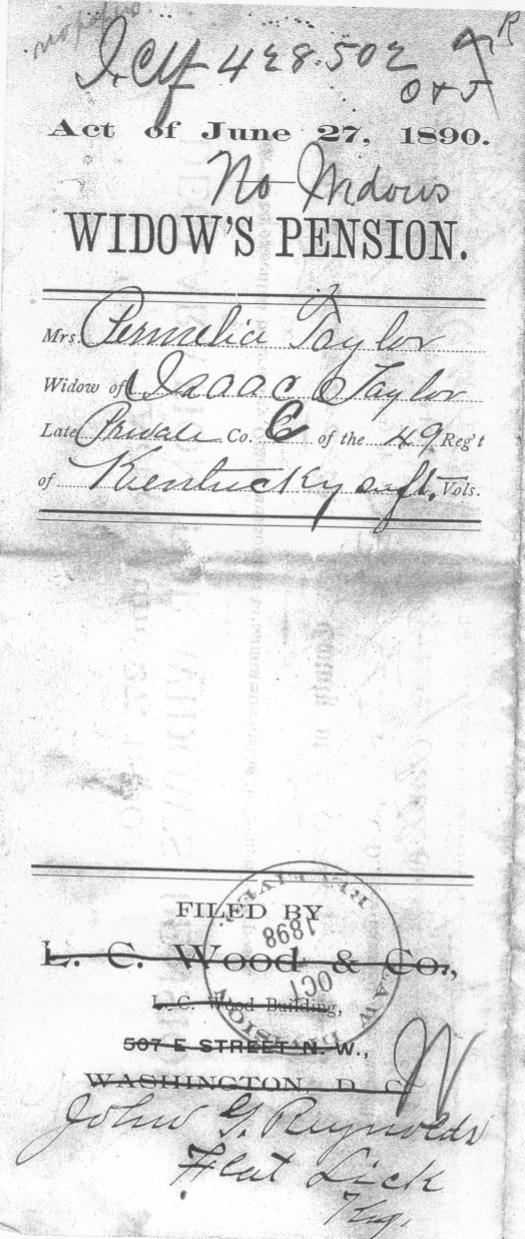 I. Ctf 428.502
O & J
Act of June 27, 1890.
No Widows
WIDOW'S PENSION.
Mrs. Permelia Taylor
Widow of Isaac Taylor
Late Private Co. C of the 49 Reg't
of Kentucky Inft. Vols.
FILED BY
RECEIVED.
OCT 1898
LAW DIVISION
L. C. Wood & Co.,
L. C. Wood Building,
507 E STREET N. W.,
WASHINGTON, D. C.
John G. Reynolds
Flat Lick
Ky.